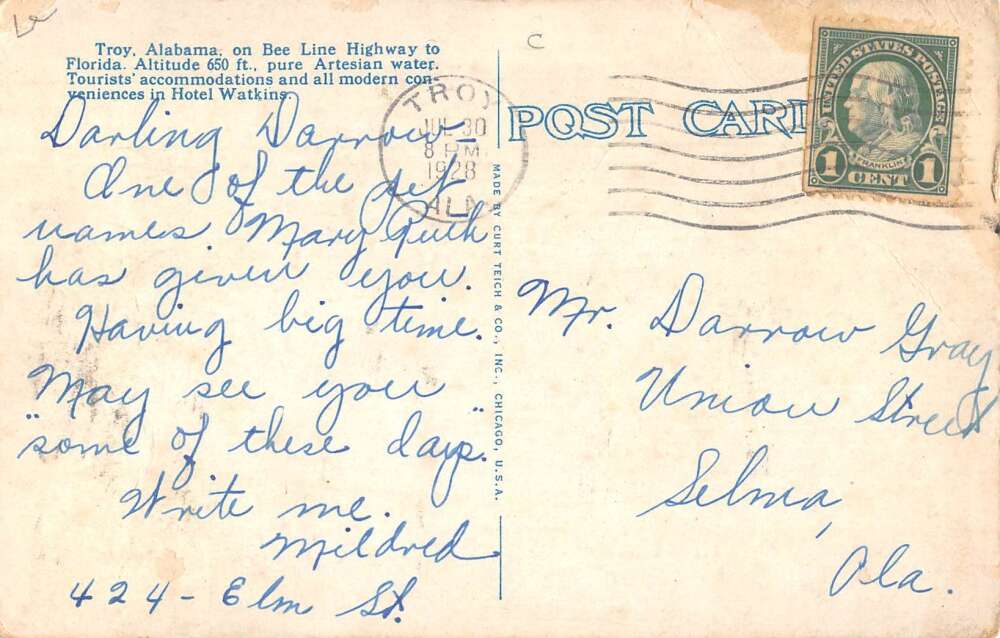 Troy, Alabama, on Bee Line Highway to
Florida. Altitude 650 ft., pure Artesian water.
Tourists' accommodations and all modern con-
veniences in Hotel Watkins.
C
TROY
JUL 30
8 PM
1928
ALA
POST CARD
UNITED STATES POSTAGE
FRANKLIN
1 CENT 1
Darling Darrow,
One of the pet
names Mary Ruth
has given you.
Having big time.
May see you
"some of these days."
Write me.
Mildred
424 - Elm St.
MADE BY CURT TEICH & CO., INC., CHICAGO, U.S.A.
Mr. Darrow Gray
Union Street
Selma,
Ala.